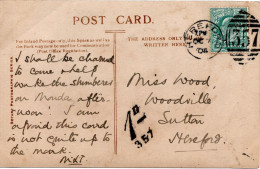 POST CARD.
For Inland Postage only, this Space as well as
the Back may now be used for Communication.
(Post Office Regulation)
THE ADDRESS ONLY
WRITTEN HERE
HEREFORD
06
357
I shall be charmed
to come & help
wake the slumberers
on Monday after-
noon! I am
afraid this card
is not quite up to
the mark.
Miss Wood,
Woodville
Sutton
Hereford.
1d
357